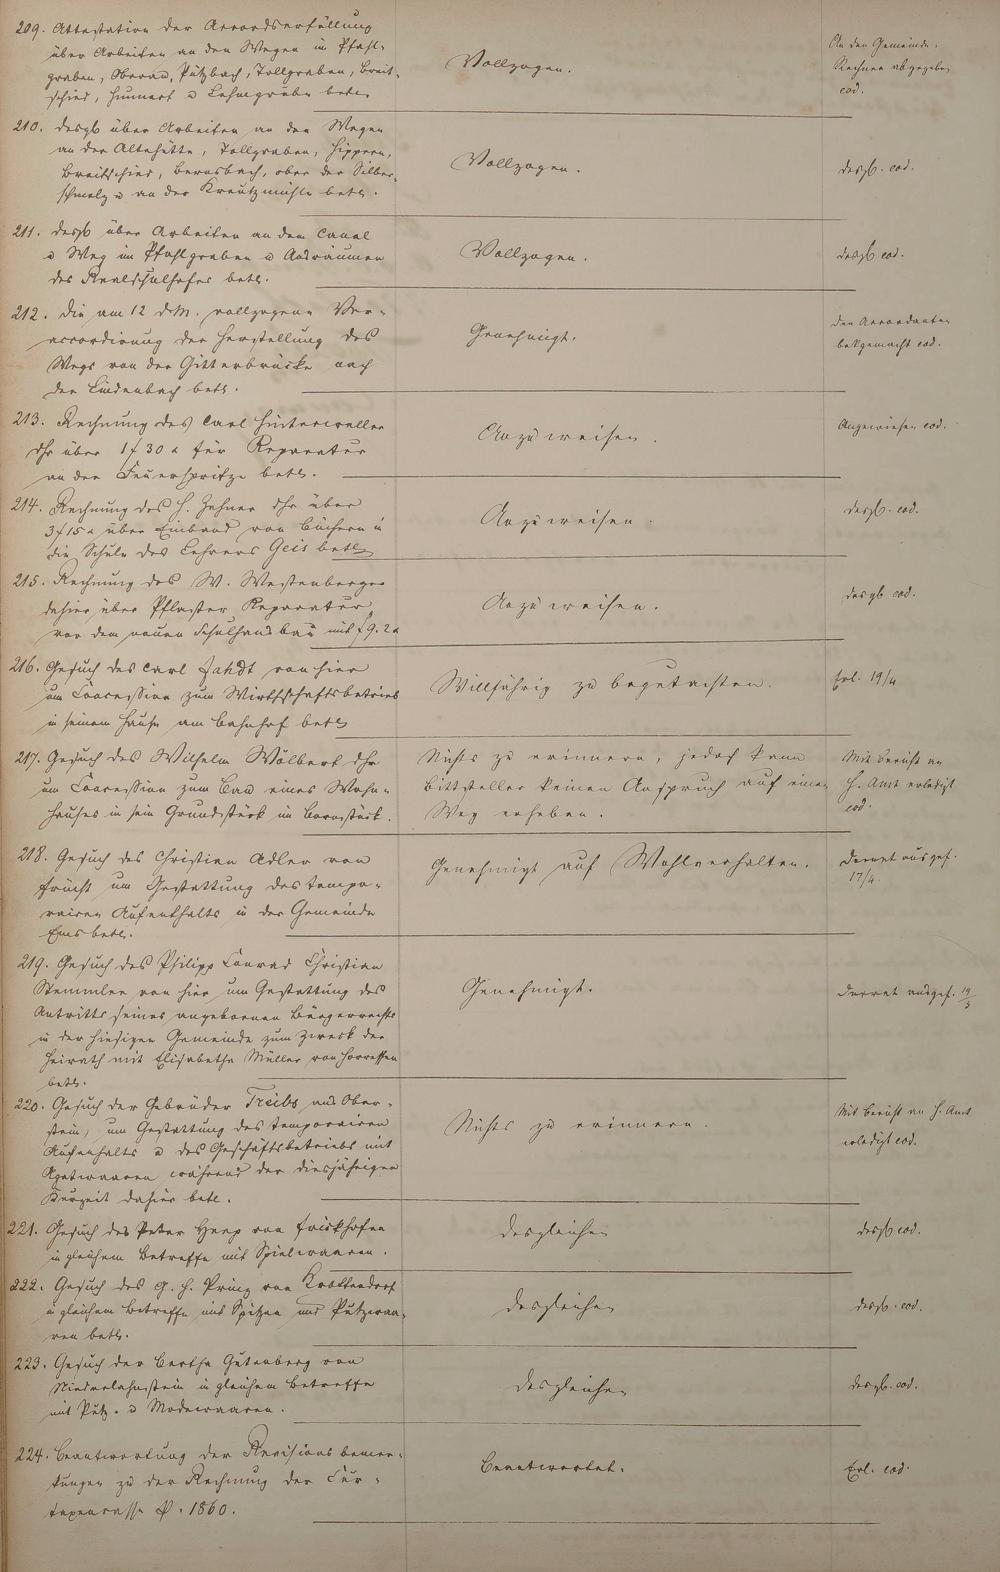 209. Attestation der Accordserfüllung
über Arbeiten an den Wegen im Pfahl-
graben, Oberau, Pützbach, Tollgraben, Breit-
schied, Hunnert u Lehmgruben betr.
Vollzogen.
An den Gemeinde-
Rechner abgegeben
eod.
210. desgl über Arbeiten an den Wegen
an der Altehütte, Tollgraben, Hippern,
Breitschied, Bernsbach, ober der Silber-
schmelz u an der Kreutzmühle betr.
Vollzogen.
desgl. eod.
211. desgl über Arbeiten an dem Canal
u Weg im Pfahlgraben u Ausräumen
des Realschulhofes betr.
Vollzogen.
desgl eod.
212. Die am 12 d.M. vollzogene Ver-
accordirung der Herstellung des
Wegs von der Gitterbrücke nach
der Lindenbach betr.
Genehmigt.
den Accordanten
bekgemacht eod.
213. Rechnung des Carl Hinterwäller
dhr über 1 f 30 x für Reparatur
an der Feuerspritze betr.
Anzuweisen.
Angewiesen eod.
214. Rechnung des H. Zehner dhr über
3 f 15 x über Einband von Büchern in
die Schule des Lehrers Geis betr
Anzuweisen.
desgl. eod.
215. Rechnung des W. Westenberger
dahier über Pflaster Reparatur
vor dem neuen Schulhausbau mit f 9. 2 x
Anzuweisen.
desgl eod.
216. Gesuch des Carl von hier
um Concession zum Wirthschaftsbetrieb
in seinem Hause am Bahnhof betr
Willfährig zu begutachten.
Erl. 19/4
217. Gesuch des Wilhelm Wölbert dhr
um Concession zum Bau eines Wohn-
hauses in sein Grundstück im Bornstück.
Nichts zu erinnern, jedoch kann
Bittsteller keinen Anspruch auf einen
Weg erheben.
Mit Bericht an
H. Amt erledigt
eod.
218. Gesuch des Christian Adler von
Frücht um Gestattung des tempo-
rairen Aufenthalts in der Gemeinde
Ems betr.
Genehmigt auf Wohlverhalten.
Decret ausgef.
17/4.
219. Gesuch des Philipp Conrad Christian
Stemmler von hier um Gestattung des
Antritts seines angebornen Bürgerrechts
in der hiesigen Gemeinde zum Zweck der
Heirath mit Elisabetha Müller von Horressen
betr.
Genehmigt.
Decret ausgef. 19/3
220. Gesuch der Gebrüder Treibs aus Ober-
stein, um Gestattung des temporairen
Aufenthalts u des Geschäftsbetriebs mit
Agatwaaren während der diesjährigen
Kurzeit dahier betr.
Nichts zu erinnern.
Mit Bericht an H. Amt
erledigt eod.
221. Gesuch des Peter Heep von Frickhofen
in gleichem Betreffe mit Spielwaaren.
desgleichen
desgl eod.
222. Gesuch des G. H. Prinz von
in gleichem Betreffe mit Spitzen und Putzwaa-
ren betr.
desgleichen
desgl. eod.
223. Gesuch der Bertha Gutenberg von
Niederlahnstein in gleichem Betreffe
mit Putz- u Modewaaren.
desgleichen
desgl. eod.
224. Beantwortung der Revisionsbemer-
kungen zu der Rechnung der Cur-
taxencasse p. 1860.
Beantwortet.
Erl. eod.